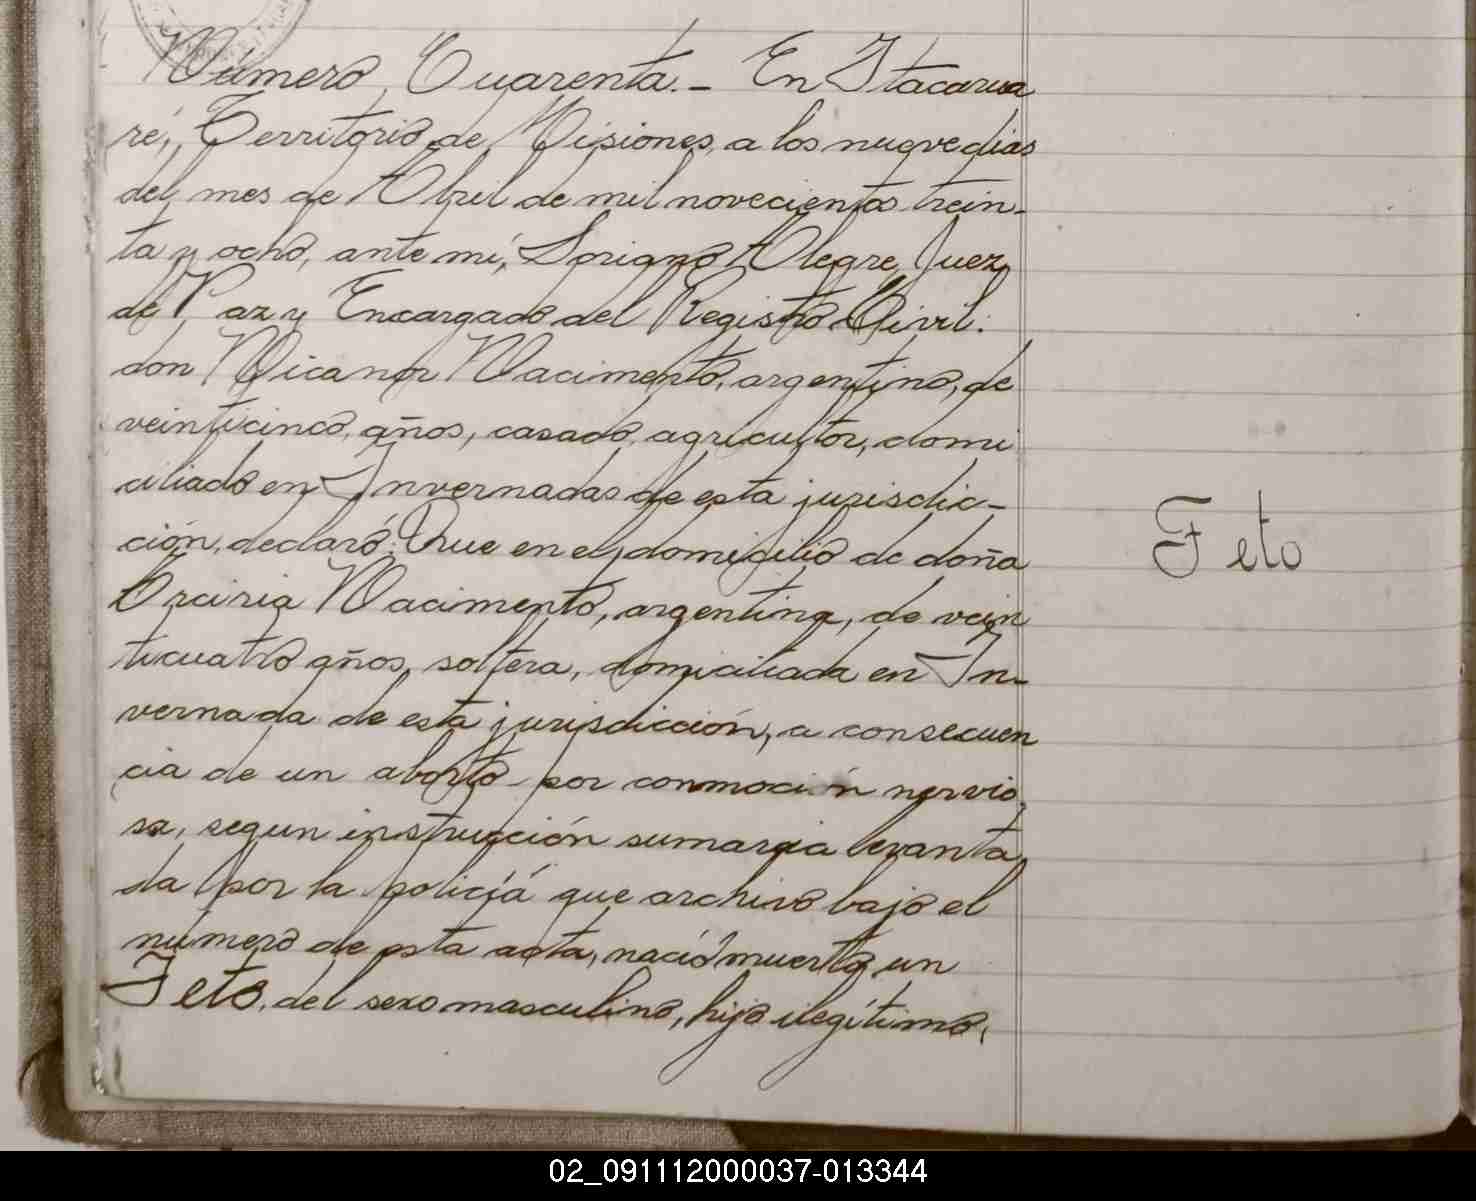 Numero Cuarenta.- En Itacarua
ré, Territorio de Misiones, a los nueve dias
del mes de Abril de mil novecientos trein-
ta y ocho, ante mi, Soriano Alegre, Juez
de Paz y Encargado del Registro Civil:
don Nicanor Nacimento, argentino, de
veinticinco años, casado, agricultor, domi
ciliado en Invernadas de esta jurisdic-
ción, declaró: Que en el domicilio de doña
Nacimento, argentina, de vein
ticuatro años, soltera, domiciliada en In-
vernada de esta jurisdicción, a consecuen
cia de un aborto por conmoción nervio
sa, segun instrucción sumaria levanta
da por la policía que archivo bajo el
numero de esta acta, nació muerto un
Feto, del sexo masculino, hijo ilegítimo,
Feto
02_091112000037-013344